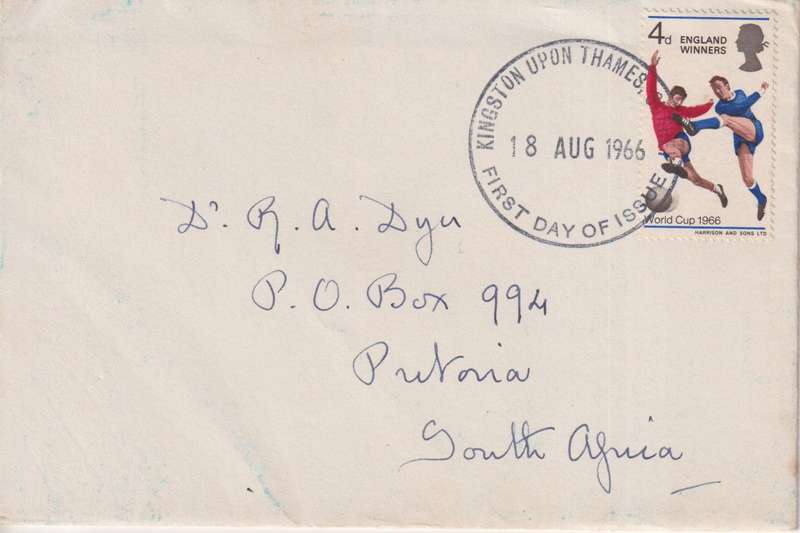 4d ENGLAND
WINNERS
World Cup 1966
HARRISON AND SONS LTD
KINGSTON UPON THAMES,
18 AUG 1966
FIRST DAY OF ISSUE
Dr. R. A. Dyer
P. O. Box 994
Pretoria
South Africa